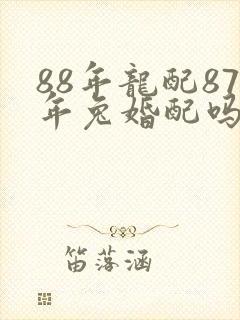 88年龍配87
年兔婚配吗
笛落涵